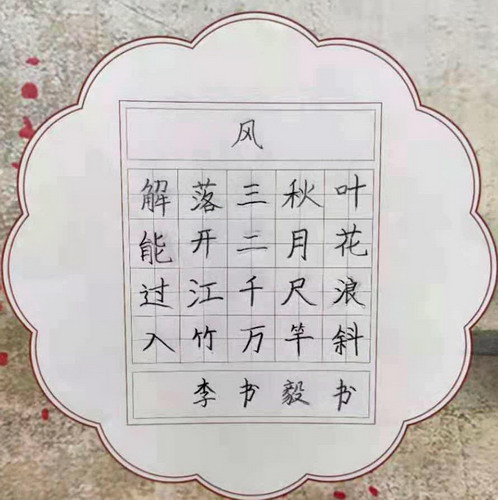 风
解落三秋叶
能开二月花
过江千尺浪
入竹万竿斜
李书毅书